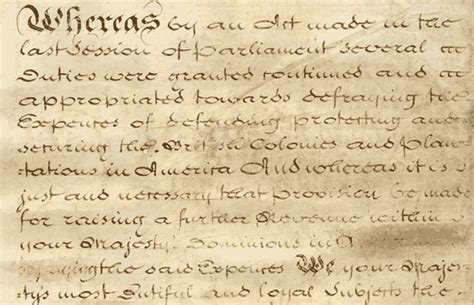 Whereas by an Act made in the
last Session of Parliament several
Duties were granted continued and
appropriated towards defraying the
Expences of defending protecting and
securing the British Colonies and Plan
tations in America And whereas it is
just and necessary that provision be made
for raising a further Revenue within
your Majesty's Dominions in
the said Expences We your Majes
ty's most Dutiful and loyal Subjects the